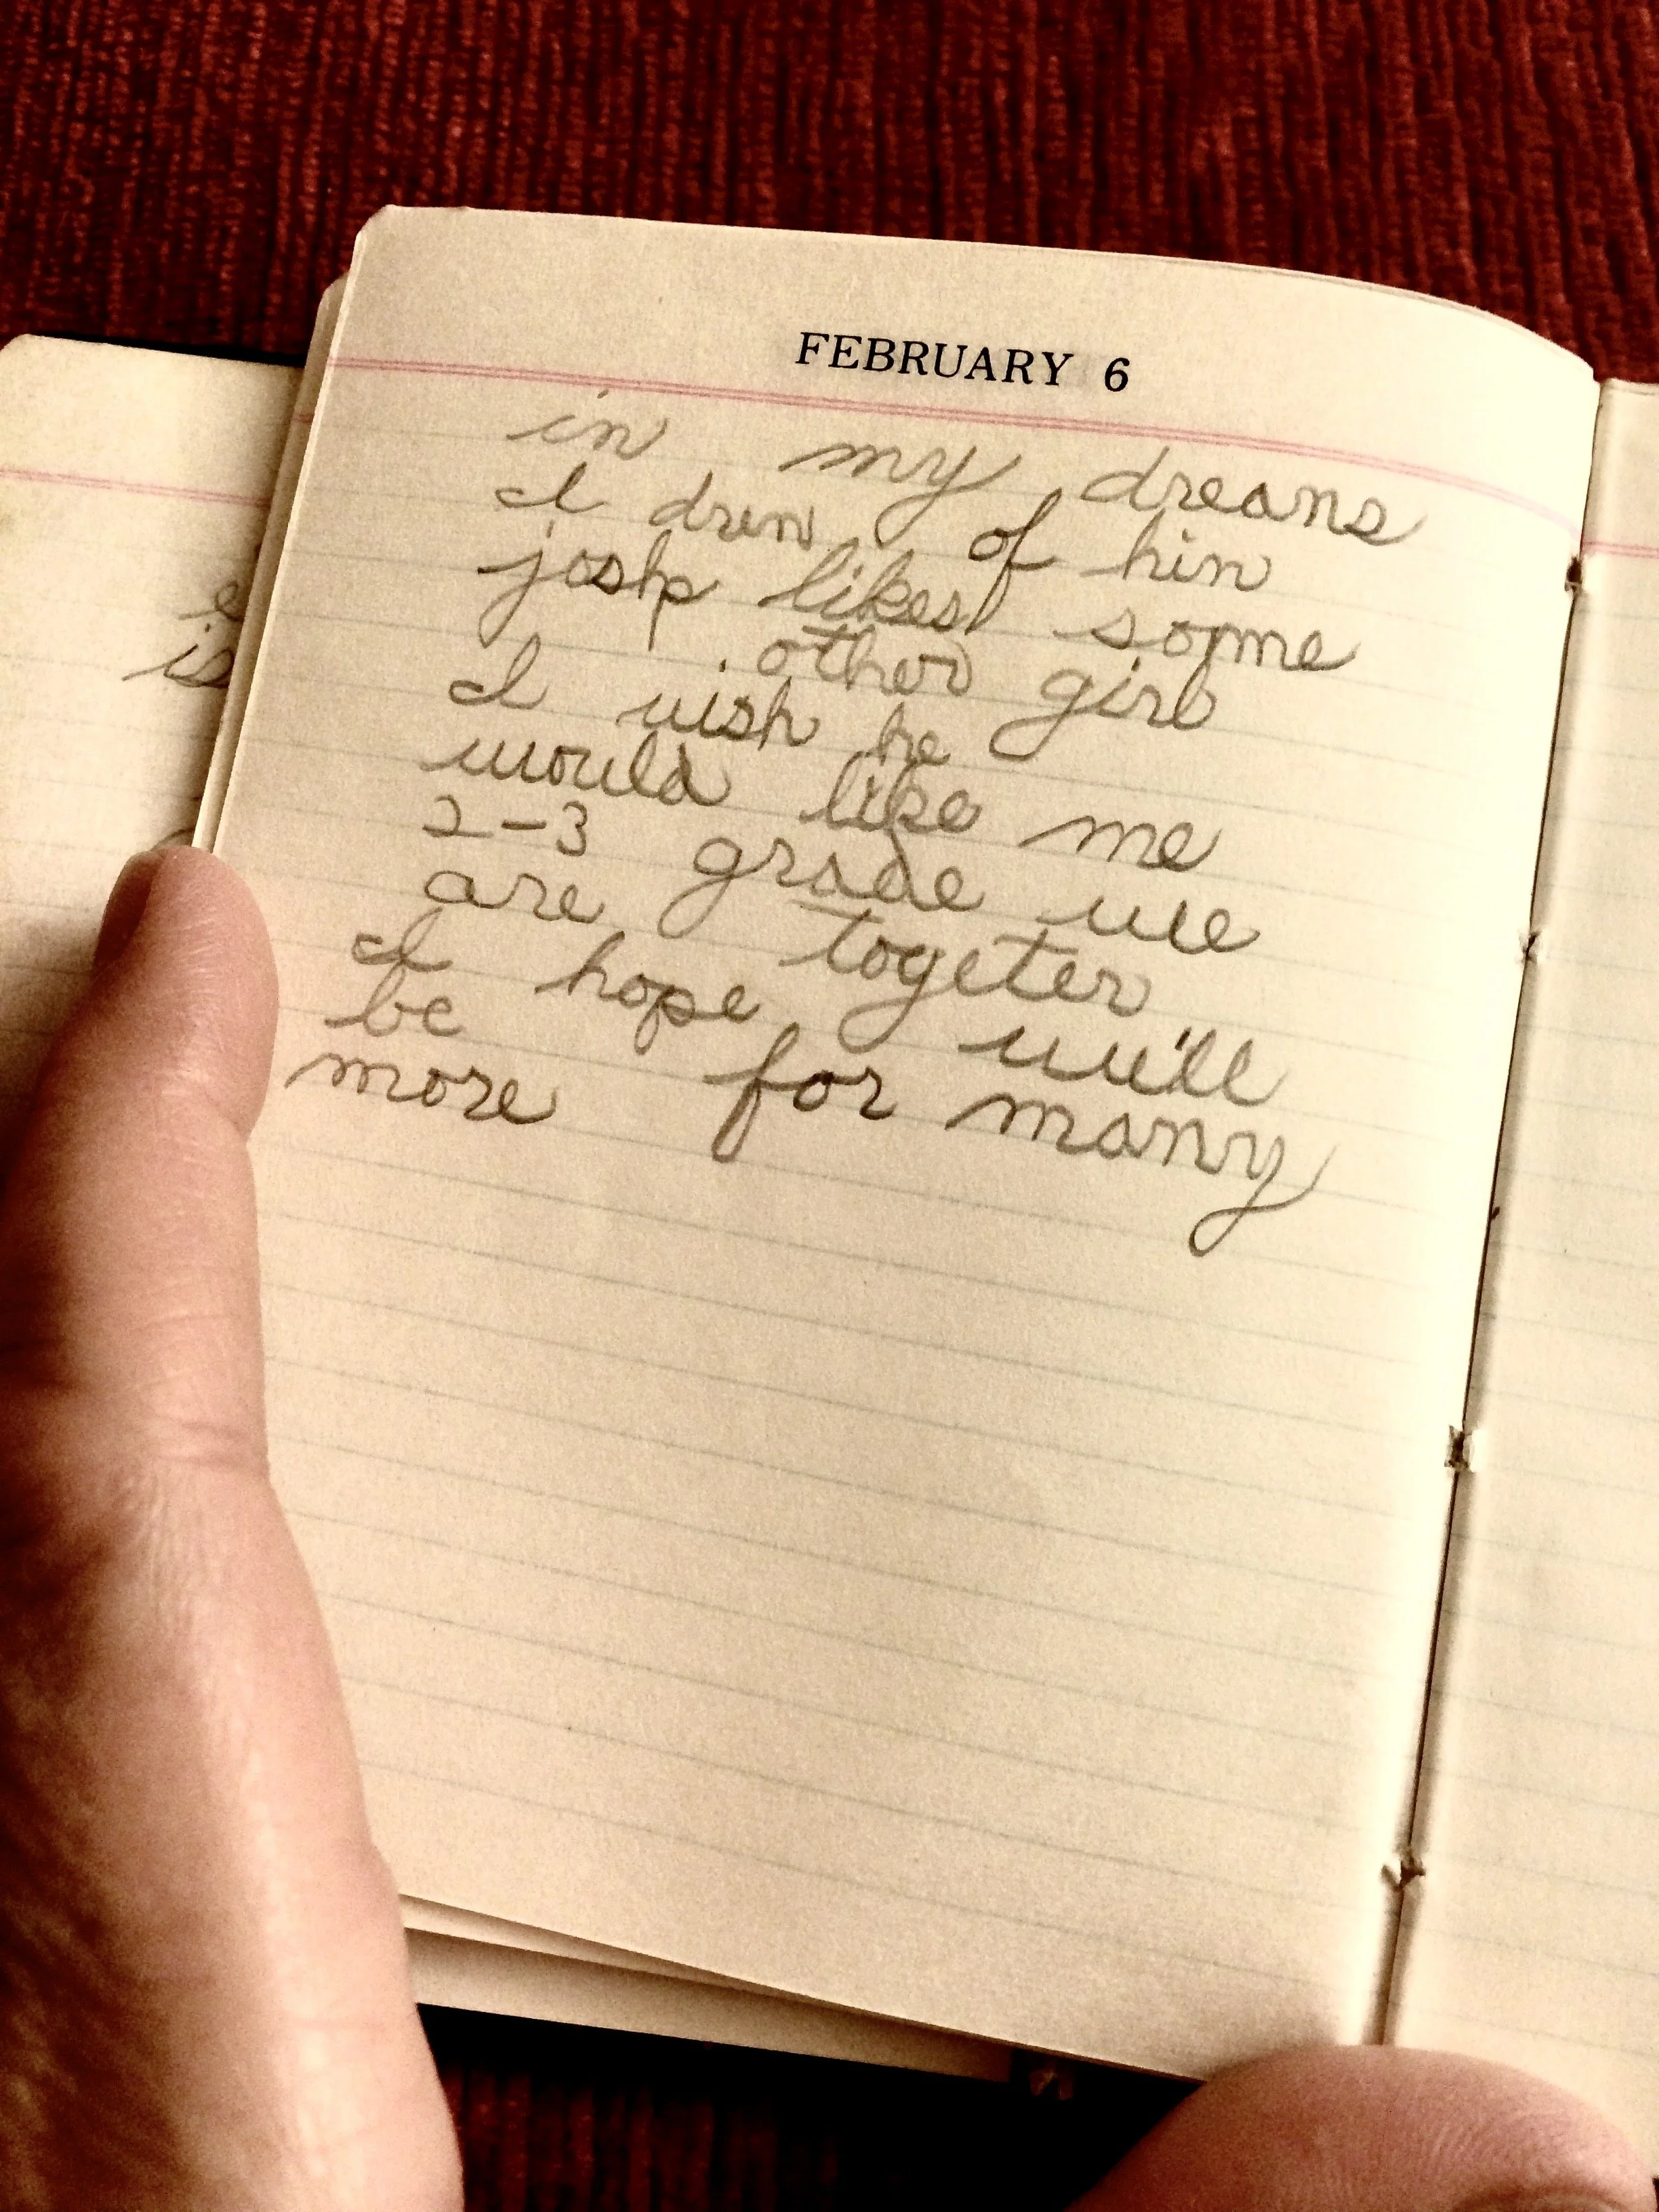 FEBRUARY 6
in my dreans
I dren of hin
josh likes some
other girl
I wish he
would like me
2-3 grade we
are togeter
I hope we'll
be for many
more
is